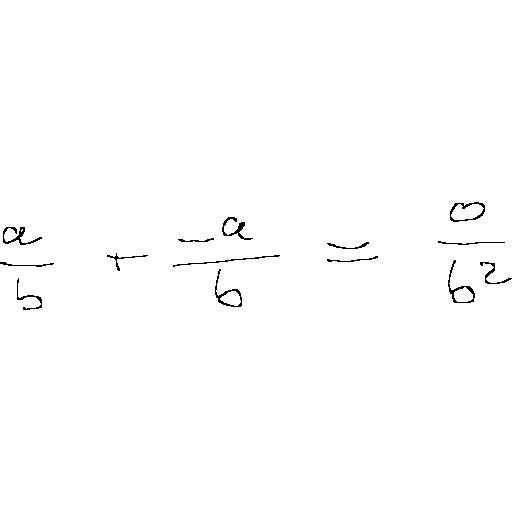 \frac{a}{b} + \frac{-a}{b} = \frac{0}{b^2}